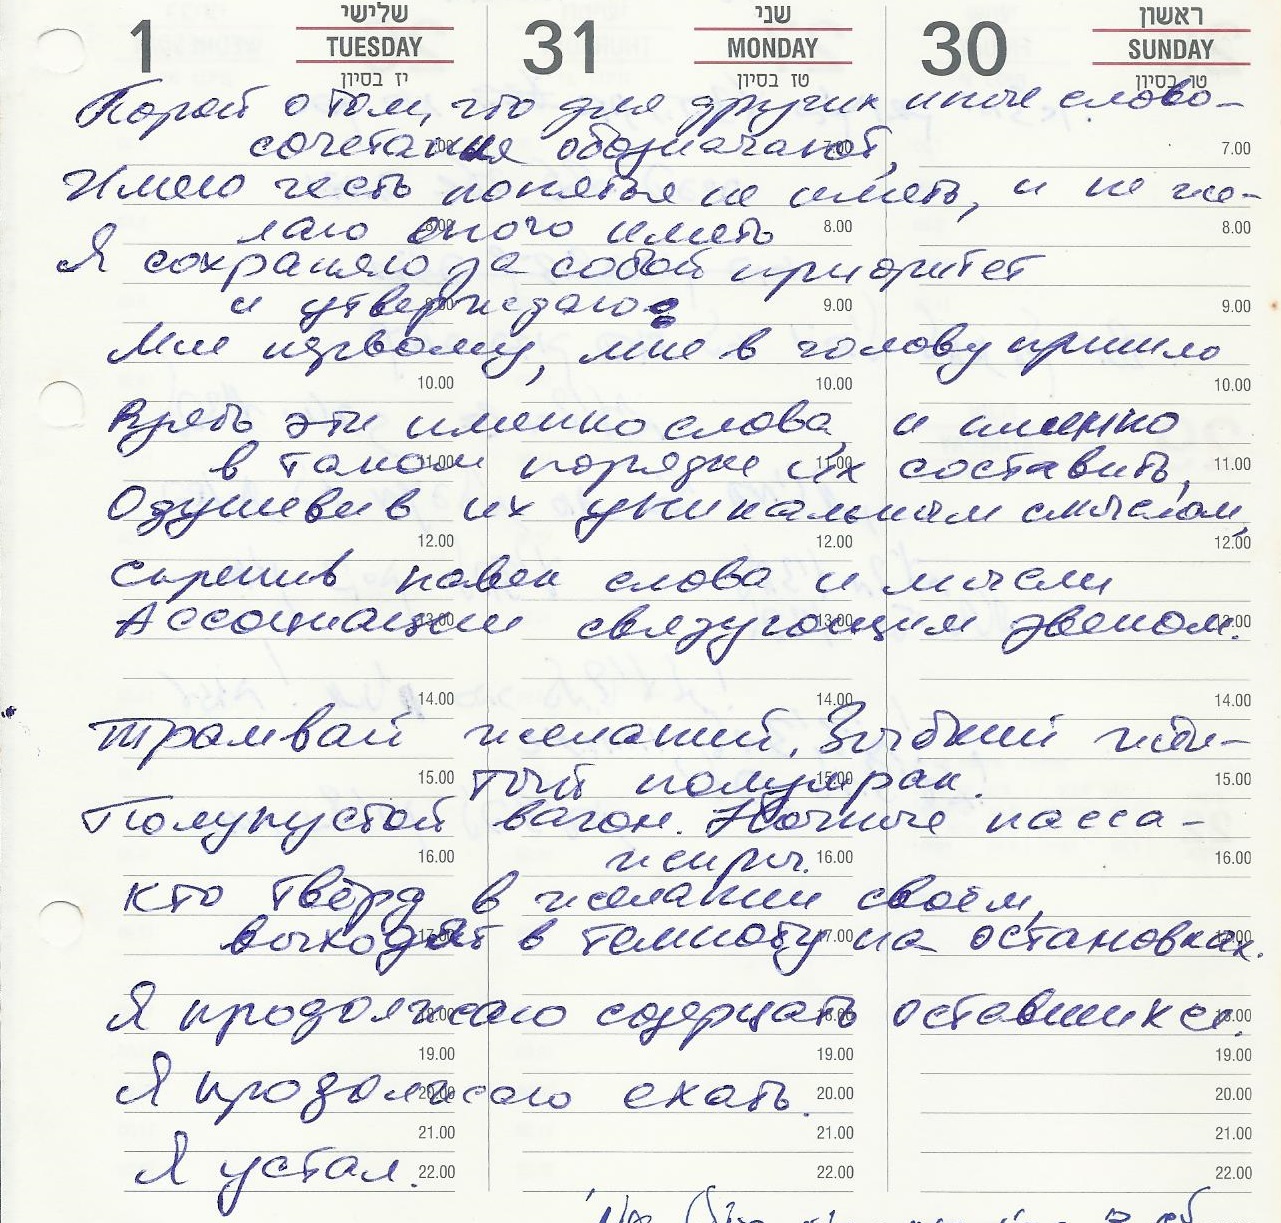 1 שלישי TUESDAY יז בסיון
31 שני MONDAY טז בסיון
30 ראשון SUNDAY טו בסיון
Порой о том, что для других иные слово-
сочетания обозначают,
7.00
Имею честь понятья не иметь, и не же-
лаю оного иметь
8.00 8.00 8.00
Я сохраняю за собой приоритет
и утверждаю:
9.00 9.00 9.00
Мне первому, мне в голову пришло
10.00 10.00 10.00
Взять эти именно слова, и именно
в таком порядке их составить,
11.00 11.00 11.00
Одушевив их уникальным смыслом,
12.00 12.00 12.00
Скрепив навек слова и мысли
Ассоциации связующим звеном.
13.00 13.00 13.00
14.00 14.00 14.00
Трамвай желаний. Зыбкий жёл-
тый полумрак.
15.00 15.00 15.00
Полупустой вагон. Ночные пасса-
жиры.
16.00 16.00 16.00
Кто твёрд в желании своём,
выходят в темноту на остановках.
17.00 17.00 17.00
Я продолжаю созерцать оставшихся.
18.00 18.00 18.00
19.00 19.00 19.00
Я продолжаю ехать.
20.00 20.00 20.00
21.00 21.00 21.00
Я устал.
22.00 22.00 22.00